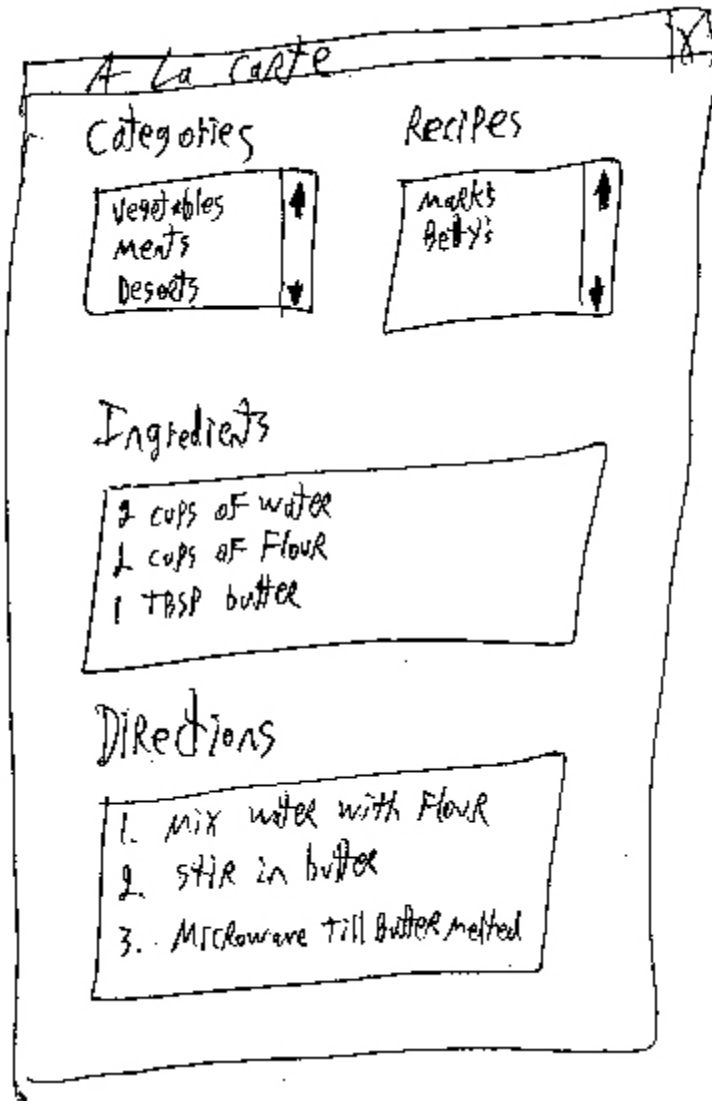 A La Carte
X
Categories
Vegetables
Meats
Deserts
Recipes
Mark's
Betty's
Ingredients
2 cups of water
2 cups of Flour
1 TBSP butter
Directions
1. Mix water with Flour
2. stir in butter
3. Microwave Till Butter melted